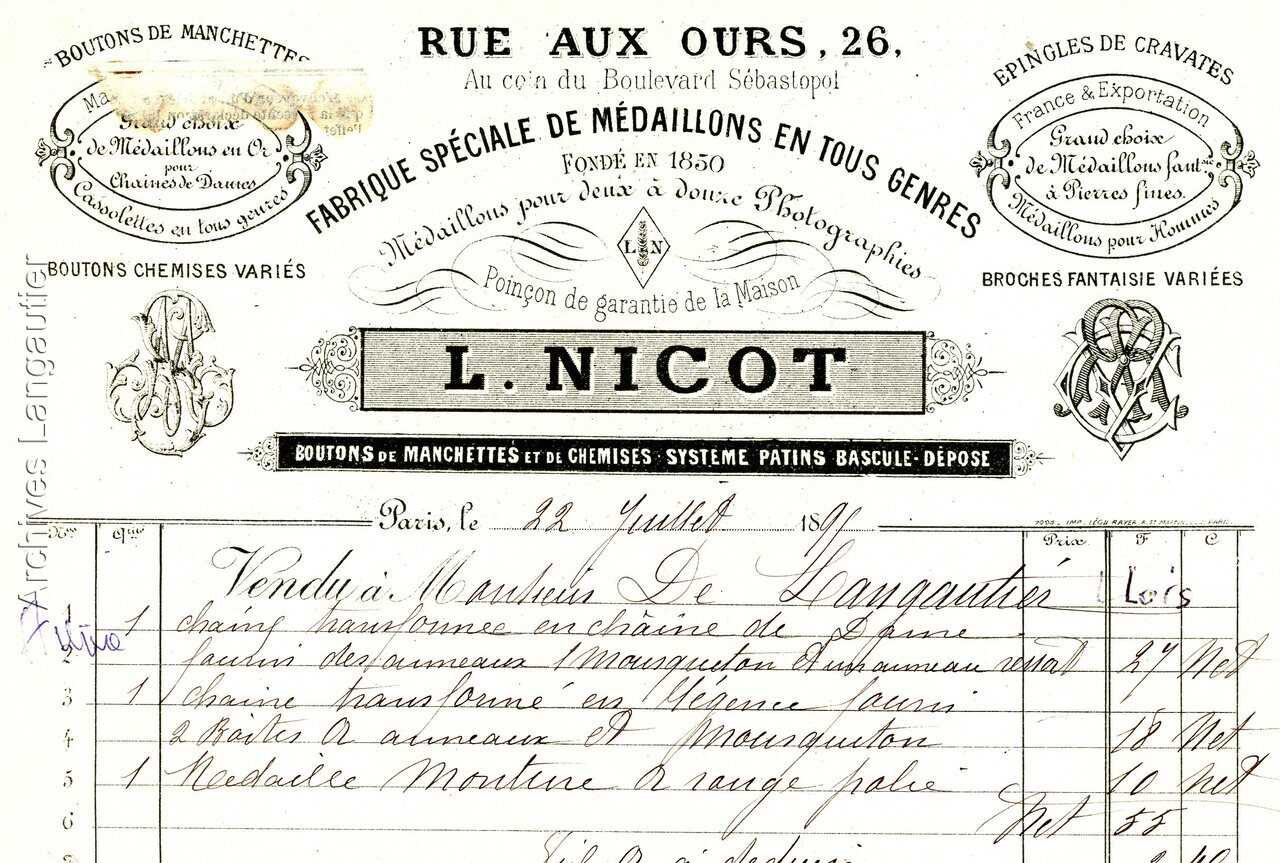 RUE AUX OURS, 26,
Au coin du Boulevard Sébastopol
FABRIQUE SPÉCIALE DE MÉDAILLONS EN TOUS GENRES
FONDÉ EN 1850
Médaillons pour deux à douze Photographies
L N
Poinçon de garantie de la Maison
BOUTONS DE MANCHETTES
Grand choix
de Médaillons en Or
pour
Chaines de Dames
Cassolettes en tous genres
BOUTONS CHEMISES VARIÉS
EPINGLES DE CRAVATES
France & Exportation
Grand choix
de Médaillons fantsie
à Pierres fines.
Médaillons pour Hommes
BROCHES FANTAISIE VARIÉES
L. NICOT
BOUTONS DE MANCHETTES ET DE CHEMISES SYSTÈME PATINS BASCULE-DÉPOSÉ
Archives Langautier
Paris, le 22 Juillet 189
1093. IMP. LÉON RAYER, R. ST MARTIN, PARIS
Nos qtés Prix F C
Vendu à Monsieur De Langautier
1 1 chaine transformée en chaîne de Dame
2 fourni des anneaux 1 Mousqueton et un anneau ressort 27 Net
3 1 chaine transformé en Régence fourni
4 2 Boites a anneaux et Mousqueton 18 Net
5 1 Medaille Monture a rouge polie 10 Net
6 Net 55
a deduire 2 40